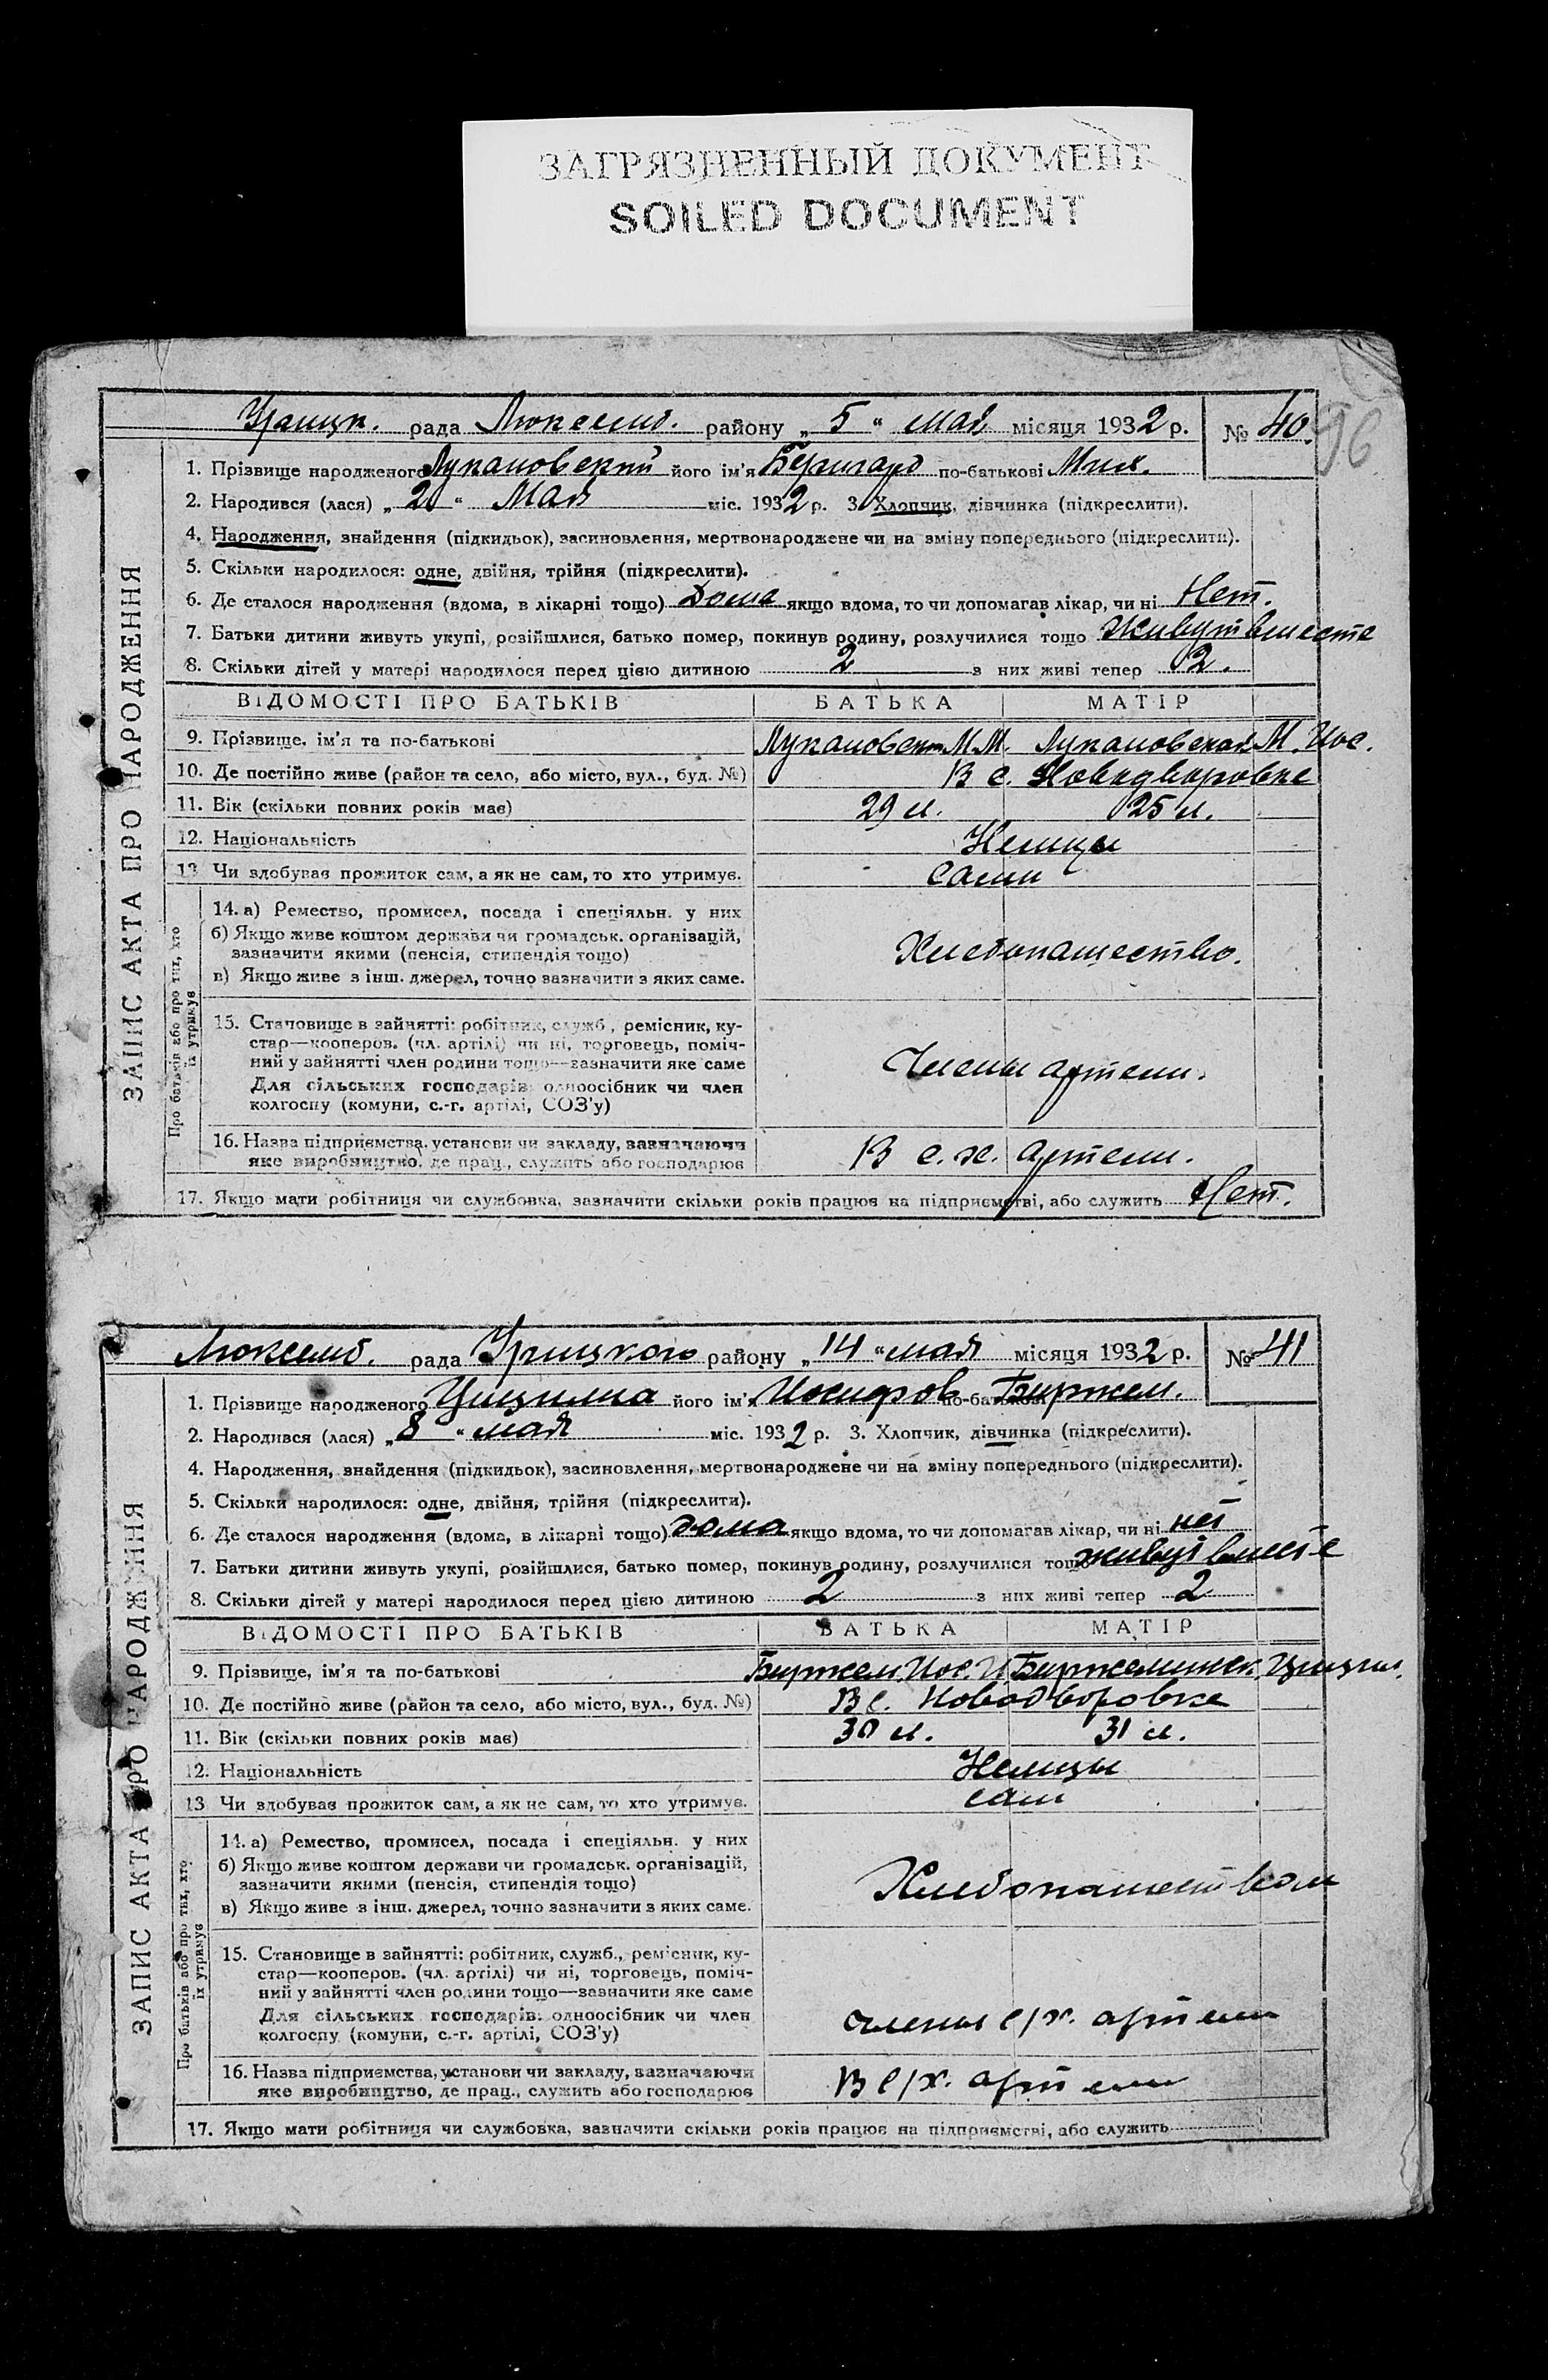 ЗАГРЯЗНЕННЫЙ ДОКУМЕНТ
SOILED DOCUMENT
96
ЗАПИС АКТА ПРО НАРОДЖЕННЯ
Урицк. рада Люксемб. району „5“ мая місяця 1932 р. № 40.
1. Прізвище народженого Лукановский його ім'я Бернгард по-батькові Мих.
2. Народився (лася) „2“ Мая міс. 1932 р. 3. Хлопчик, дівчинка (підкреслити).
4. Народження, знайдення (підкидьок), засиновлення, мертвонароджене чи на зміну попереднього (підкреслити).
5. Скільки народилося: одне, двійня, трійня (підкреслити).
6. Де сталося народження (вдома, в лікарні тощо) Дома якщо вдома, то чи допомагав лікар, чи ні Нет.
7. Батьки дитини живуть укупі, розійшлися, батько помер, покинув родину, розлучилися тощо Живут вместе
8. Скільки дітей у матері народилося перед цією дитиною 2 з них живі тепер 2.
ВІДОМОСТІ ПРО БАТЬКІВ БАТЬКА МАТІР
9. Прізвище, ім'я та по-батькові Лукановски М.М. Лукановская М. Иос.
10. Де постійно живе (район та село, або місто, вул., буд. №) В с. Новодворовке
11. Вік (скільки повних років має) 29 л. 25 л.
12. Національність Немцы
13. Чи здобував прожиток сам, а як не сам, то хто утримує. сами
Про батьків або про тих, хто їх утримує
14. а) Ремество, промисел, посада і спеціяльн. у них
б) Якщо живе коштом держави чи громадськ. організацій,
зазначити якими (пенсія, стипендія тощо) Хлебопашество.
в) Якщо живе з інш. джерел, точно зазначити з яких саме.
15. Становище в зайнятті: робітник, служб., ремісник, ку-
стар—кооперов. (чл. артілі) чи ні, торговець, поміч-
ний у зайнятті член родини тощо—зазначити яке саме
Для сільських господарів: одноосібник чи член Члены артели.
колгоспу (комуни, с.-г. артілі, СОЗ'у)
16. Назва підприємства, установи чи закладу, зазначаючи В с. х. артели.
яке виробництво, де прац., служить або господарює
17. Якщо мати робітниця чи службовка, зазначити скільки років працює на підприємстві, або служить Нет.
ЗАПИС АКТА ПРО НАРОДЖЕННЯ
Люксемб. рада Урицкого району „14“ мая місяця 1932 р. № 41
1. Прізвище народженого його ім'я Иосифов по-батькові
2. Народився (лася) „8“ мая міс. 1932 р. 3. Хлопчик, дівчинка (підкреслити).
4. Народження, знайдення (підкидьок), засиновлення, мертвонароджене чи на зміну попереднього (підкреслити).
5. Скільки народилося: одне, двійня, трійня (підкреслити).
6. Де сталося народження (вдома, в лікарні тощо) дома якщо вдома, то чи допомагав лікар, чи ні нет
7. Батьки дитини живуть укупі, розійшлися, батько помер, покинув родину, розлучилися тощо живут вместе
8. Скільки дітей у матері народилося перед цією дитиною 2 з них живі тепер 2
ВІДОМОСТІ ПРО БАТЬКІВ БАТЬКА МАТІР
9. Прізвище, ім'я та по-батькові
10. Де постійно живе (район та село, або місто, вул., буд. №) В с. Новодворовке
11. Вік (скільки повних років має) 30 л. 31 л.
12. Національність Немцы
13. Чи здобував прожиток сам, а як не сам, то хто утримує. сами
Про батьків або про тих, хто їх утримує
14. а) Ремество, промисел, посада і спеціяльн. у них
б) Якщо живе коштом держави чи громадськ. організацій,
зазначити якими (пенсія, стипендія тощо) Хлебопашеством
в) Якщо живе з інш. джерел, точно зазначити з яких саме.
15. Становище в зайнятті: робітник, служб., ремісник, ку-
стар—кооперов. (чл. артілі) чи ні, торговець, поміч-
ний у зайнятті член родини тощо—зазначити яке саме
Для сільських господарів: одноосібник чи член члены с/х. артели
колгоспу (комуни, с.-г. артілі, СОЗ'у)
16. Назва підприємства, установи чи закладу, зазначаючи В с/х. артели
яке виробництво, де прац., служить або господарює
17. Якщо мати робітниця чи службовка, зазначити скільки років працює на підприємстві, або служить